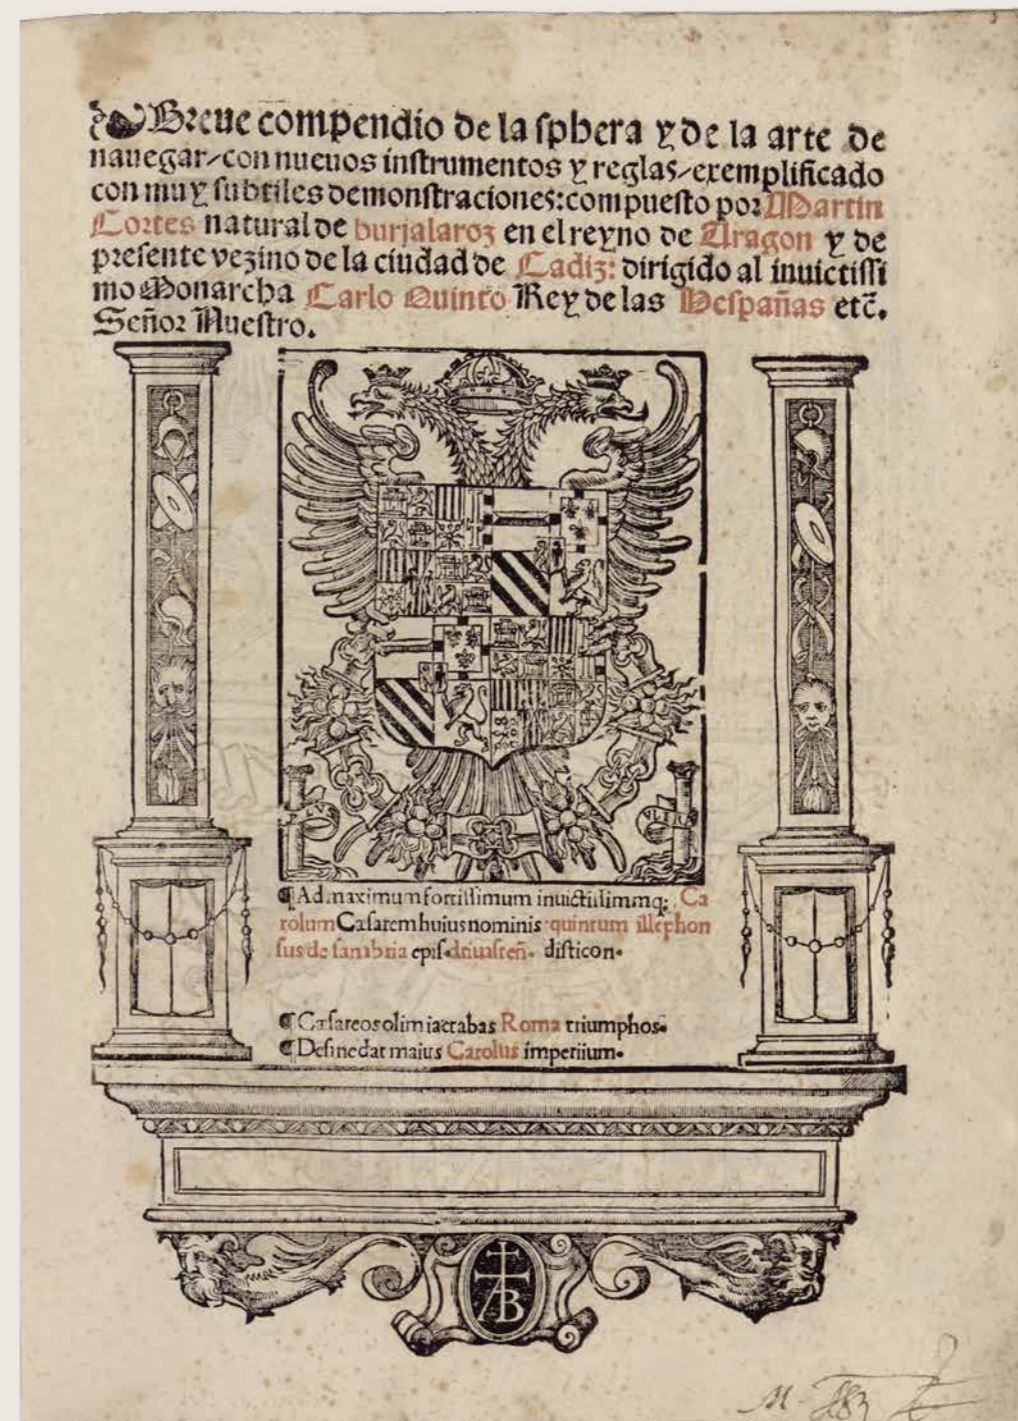 Breue compendio de la sphera y de la arte de
nauegar/con nueuos instrumentos y reglas/exemplificado
con muy subtiles demonstraciones: compuesto por Martin
Cortes natural de burjalaroz en el reyno de Aragon y de
presente vezino de la ciudad de Cadiz: dirigido al inuictissi
mo Monarcha Carlo Quinto Rey de las Hespañas etc̃.
Señor Nuestro.
¶ Ad maximum fortissimum inuictissimmq; Ca
rolum Cæsarem huius nominis quintum illephon
sus de sanabria epis. driuasteñ. disticon.
¶ Cæsareos olim iactabas Roma triumphos.
¶ Desine dat maius Carolus imperiium.
AB